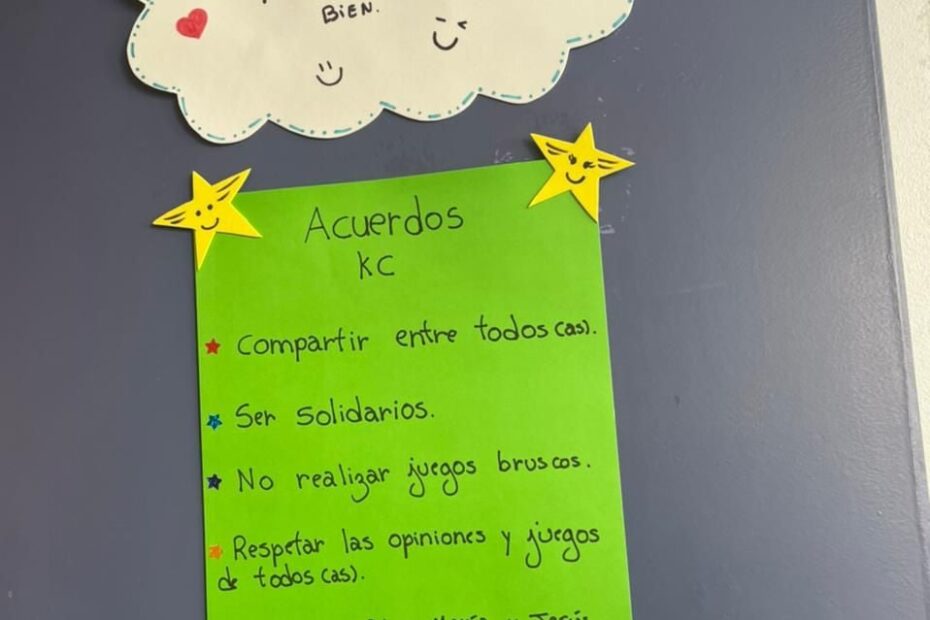 BIEN.
Acuerdos
KC
Compartir entre todos(as).
Ser solidarios.
No realizar juegos bruscos.
Respetar las opiniones y juegos
de todos(as).